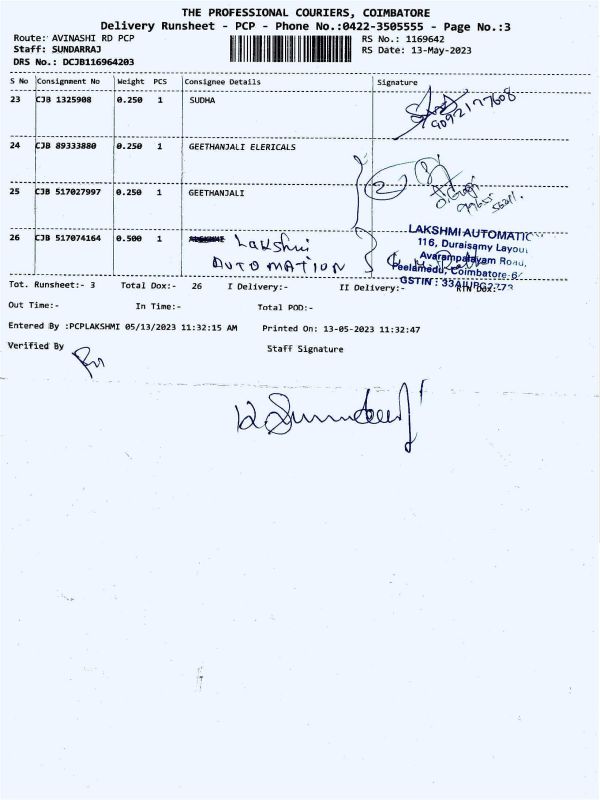 THE PROFESSIONAL COURIERS, COIMBATORE
Delivery Runsheet - PCP - Phone No.:0422-3505555 - Page No.:3
Route: AVINASHI RD PCP RS No.: 1169642
Staff: SUNDARRAJ RS Date: 13-May-2023
DRS No.: DCJB116964203
S No Consignment No Weight PCS Consignee Details Signature
23 CJB 1325908 0.250 1 SUDHA
9092177608
24 CJB 89333880 0.250 1 GEETHANJALI ELERICALS
2
25 CJB 517027997 0.250 1 GEETHANJALI
26 CJB 517074164 0.500 1 Lakshmi
AUTOMATION
LAKSHMI AUTOMATIC
116, Duraisamy Layout
Avarampalayam Road,
Peelamedu, Coimbatore
GSTIN :
Tot. Runsheet:- 3 Total Dox:- 26 I Delivery:- II Delivery:- RTN Dox:-
Out Time:- In Time:- Total POD:-
Entered By :PCPLAKSHMI 05/13/2023 11:32:15 AM Printed On: 13-05-2023 11:32:47
Verified By Staff Signature